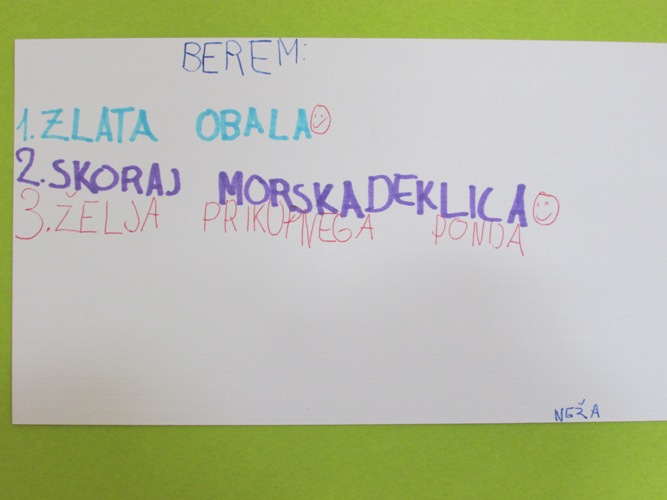 BEREM:
1. ZLATA OBALA
2. SKORAJ MORSKA DEKLICA
3. ŽELJA PRIKUPNEGA PONIJA
NEŽA